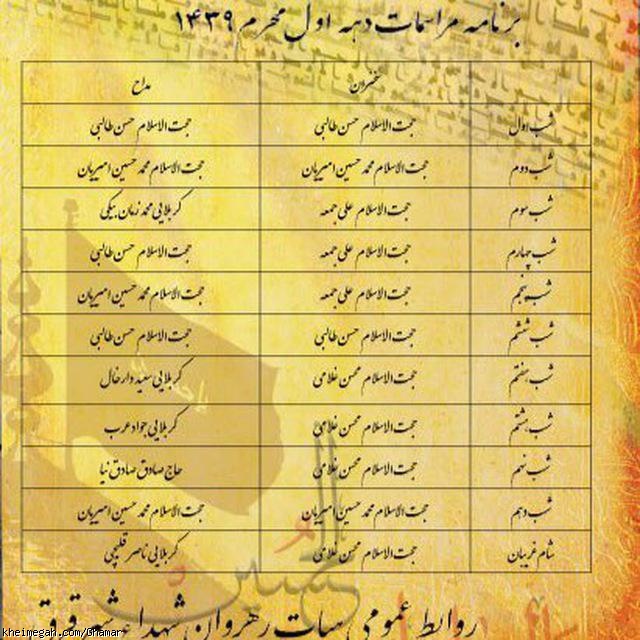 برنامه مراسمات دهه اول محرم ۱۴۳۹
سخنران مداح
شب اول حجت الاسلام حسن طالبی حجت الاسلام حسن طالبی
شب دوم حجت الاسلام محمد حسین امیریان حجت الاسلام محمد حسین امیریان
شب سوم حجت الاسلام علی جمعه کربلایی محمد زمان بیکی
شب چهارم حجت الاسلام علی جمعه حجت الاسلام حسن طالبی
شب پنجم حجت الاسلام علی جمعه حجت الاسلام محمد حسین امیریان
شب ششم حجت الاسلام حسن طالبی حجت الاسلام حسن طالبی
شب هفتم حجت الاسلام محسن غلامی کربلایی سعید دارخال
شب هشتم حجت الاسلام محسن غلامی کربلایی جواد عرب
شب نهم حجت الاسلام محسن غلامی حاج صادق صادق نیا
شب دهم حجت الاسلام محمد حسین امیریان حجت الاسلام محمد حسین امیریان
شام غریبان حجت الاسلام محسن غلامی کربلایی ناصر قلیچی
روابط عمومی هیات رهروان شهدا
kheimegah.com/Ghamar